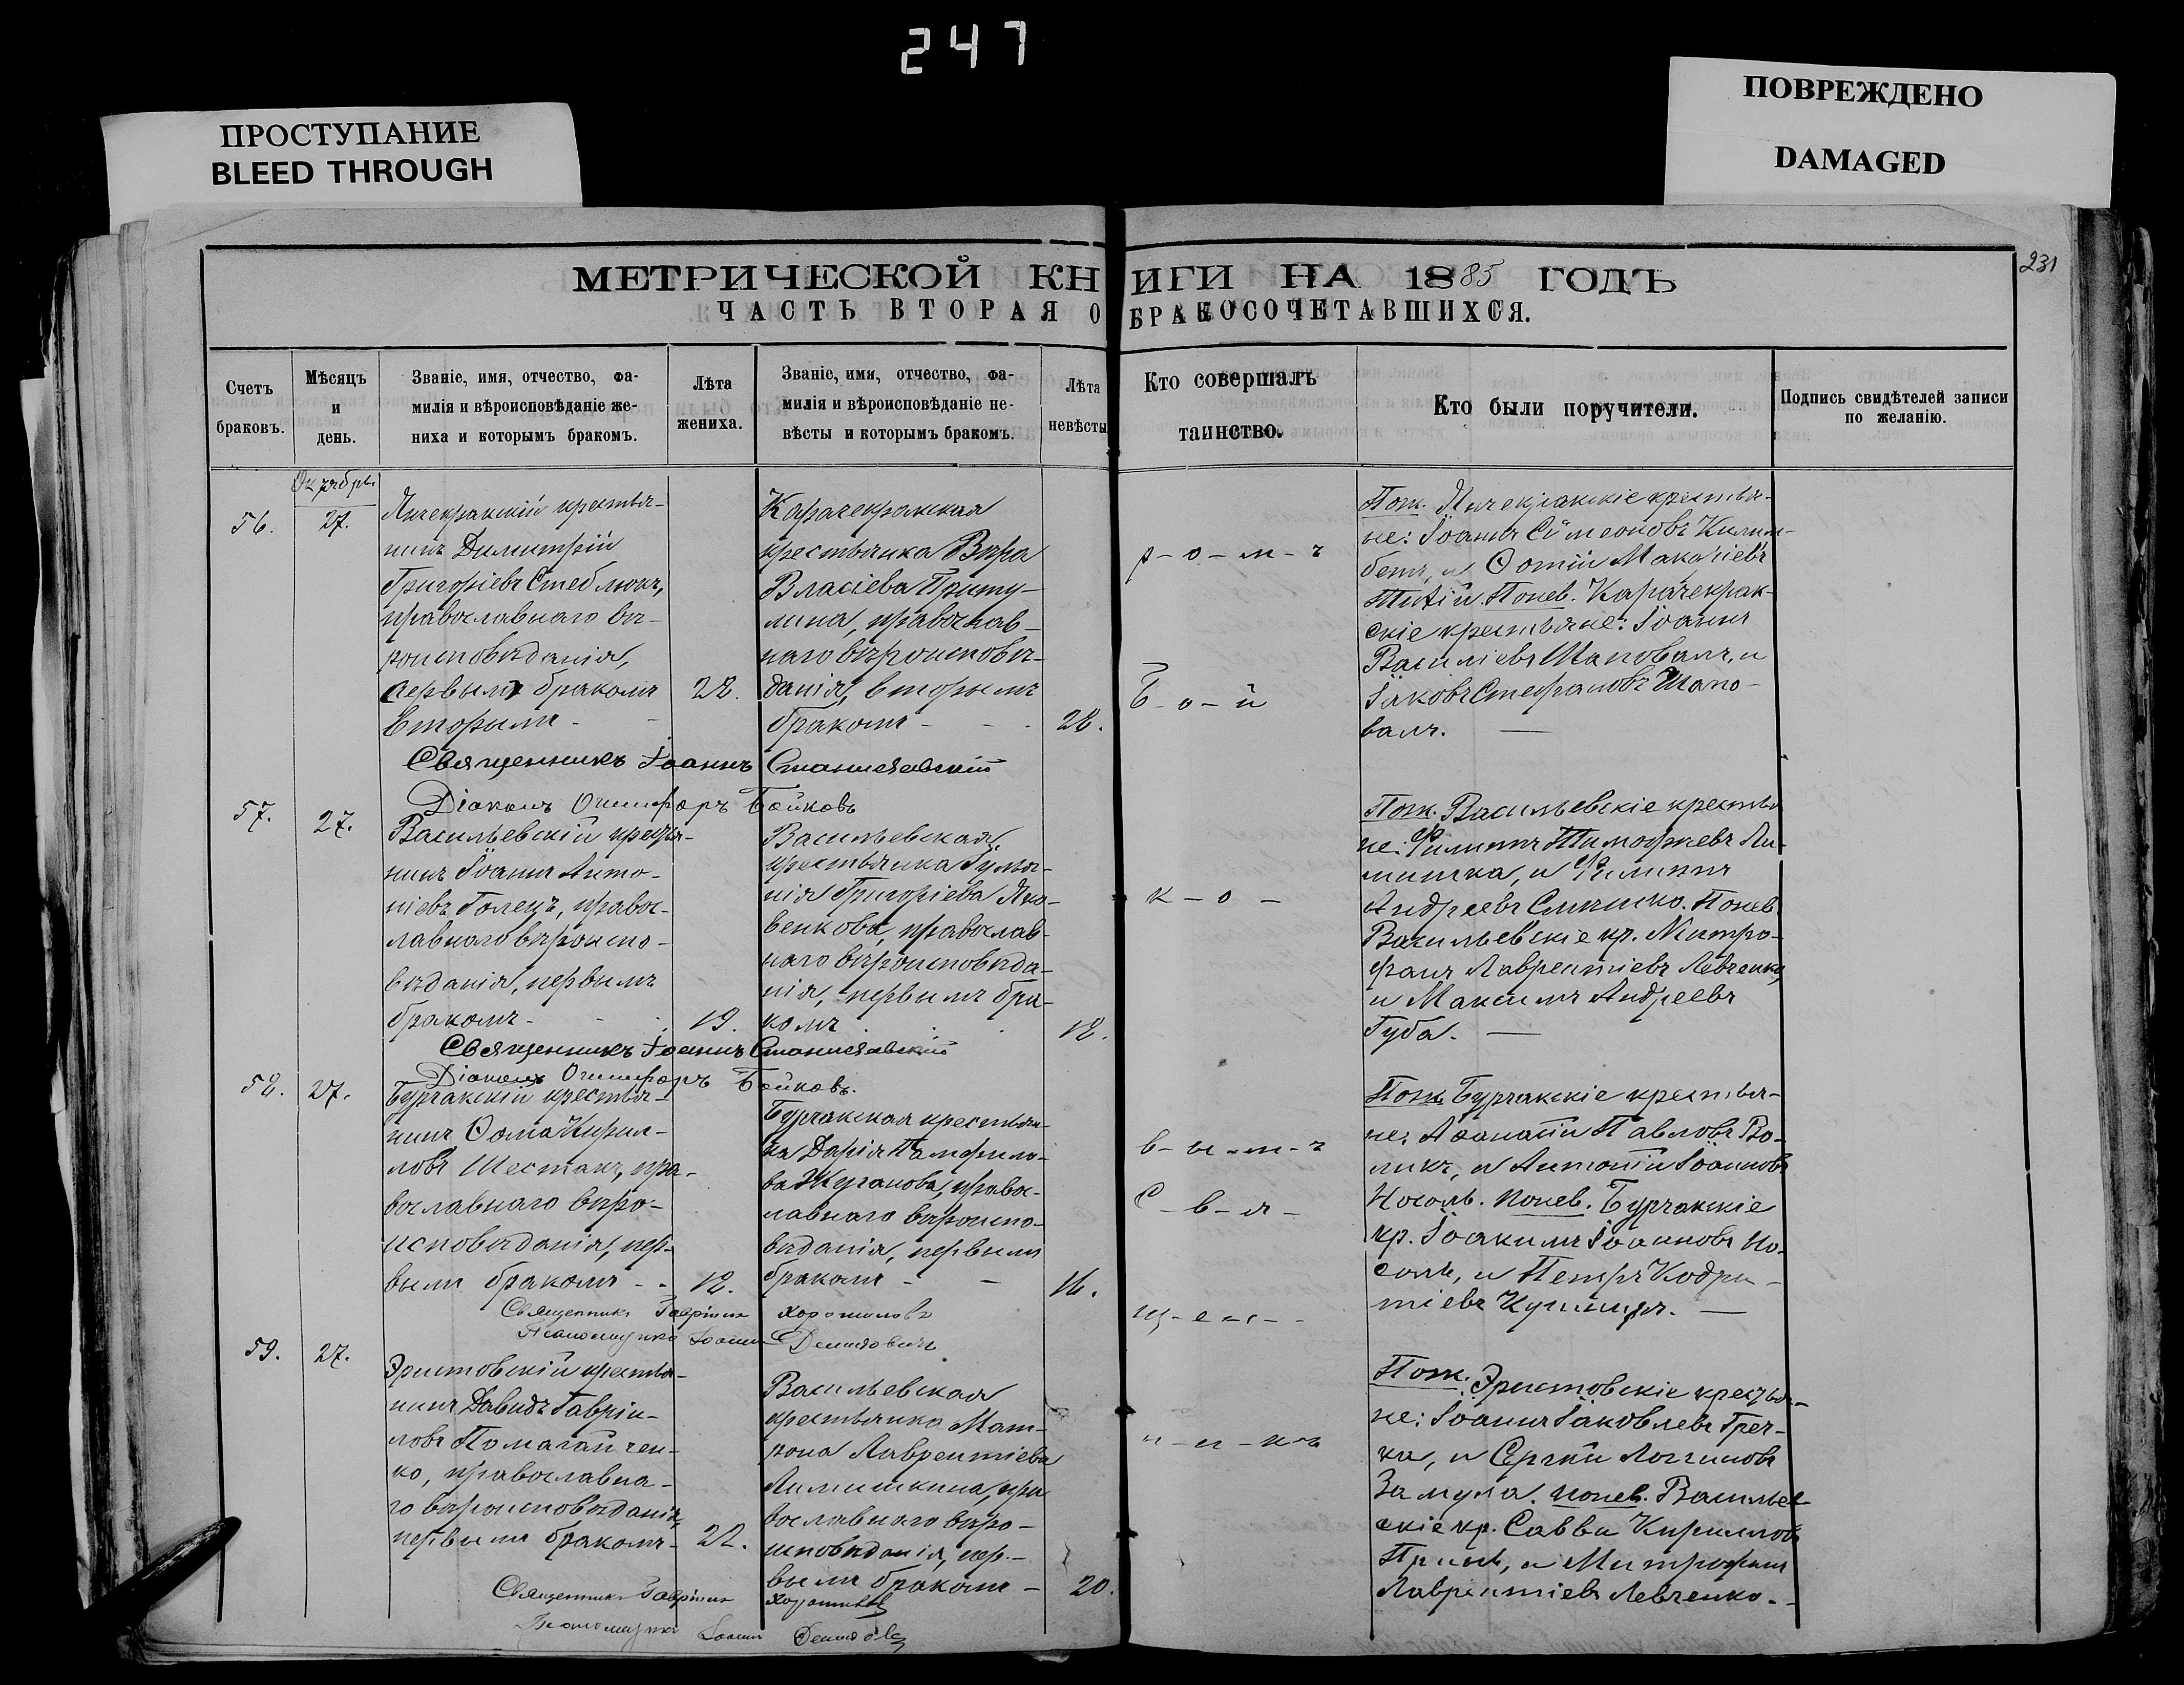 247
ПРОСТУПАНИЕ
BLEED THROUGH
ПОВРЕЖДЕНО
DAMAGED
231
МЕТРИЧЕСКОЙ КНИГИ НА 1885 ГОДЪ
ЧАСТЬ ВТОРАЯ О БРАКОСОЧЕТАВШИХСЯ.
Счетъ
браковъ.
Мѣсяцъ
и
день.
Званіе, имя, отчество, фа-
милія и вѣроисповѣданіе же-
ниха и которымъ бракомъ.
Лѣта
жениха.
Званіе, имя, отчество, фа-
милія и вѣроисповѣданіе не-
вѣсты и которымъ бракомъ.
Лѣта
невѣсты
Кто совершалъ
таинство.
Кто были поручители.
Подпись свидѣтелей записи
по желанію.
Октябрь.
56.
27.
Янчекракскій крестья-
нинъ Димитрій
Григоріевъ Стеблюкъ,
православнаго вѣ-
роисповѣданія,
первымъ бракомъ
вторымъ -
22.
Карачекракская
крестьянка Вѣра
Власіева Приту-
лина, православ-
наго вѣроисповѣ-
данія, вторымъ
бракомъ - - -
28.
р-о-м-ъ
Б-о-й
Пож. Янчекракскіе крестья-
не: Іоаннъ Сѵмеоновъ
бетъ, и Ѳотій Макаріевъ
Понев. Карачекрак-
скіе крестьяне: Іоаннъ
Василіевъ Шаповалъ, и
Іаковъ Стефановъ Шапо-
валъ. —
Священникъ Іоаннъ Станиславскій
Діаконъ Онисифоръ Бойковъ
57.
27.
Васильевскій крестья-
нинъ Іоаннъ Анто-
ніевъ Голецъ, правос-
лавнаго вѣроиспо-
вѣданія, первымъ
бракомъ - - .
19.
Васильевская
крестьянка Гульѣ-
нія Григоріева Яко-
венкова, православ-
наго вѣроисповѣда-
нія, первымъ бра-
комъ . .
18.
к-о-
Пож. Васильевскіе крестья
не: Филиппъ Тимофѣевъ Ли-
митка, и Филиппъ
Андреевъ Слишко. Понев.
Васильевскіе кр. Митро-
фанъ Лаврентіевъ Левченко,
и Максимъ Андреевъ
Губа. —
Священникъ Іоаннъ Станиславскій
Діаконъ Онисифоръ Бойковъ.
58.
27.
Бурчакскій крестья-
нинъ Ѳома Кирил-
ловъ Шестакъ, пра-
вославнаго вѣро-
исповѣданія, пер-
вымъ бракомъ - -
18.
Бурчакская крестьян-
ка Дарія Памфило-
ва Жуганова, правос-
лавнаго вѣроиспо-
вѣданія, первымъ
бракомъ - -
16.
в-ы-м-ъ
С-в-я-
щ-е-н-
Пож. Бурчакскіе крестья-
не: Аѳанасій Павловъ Во-
ликъ, и Антоній Іоанновъ
Носоль. Понев. Бурчакскіе
кр. Іоакимъ Іоанновъ Но-
соль, и Петръ Кодра-
тіевъ Кушниръ. —
Священникъ Гавріилъ Хорошиловъ
Псаломщикъ Іоаннъ Демидовичъ
59.
27.
Эристовскій крестья-
нинъ Давидъ Гавріи-
ловъ Помагайчен-
ко, православна-
го вѣроисповѣданія,
первымъ бракомъ -
22.
Васильевская
крестьянка Мат-
рона Лаврентіева
Лимишкина, пра
вославнаго вѣро-
исповѣданія, пер-
вымъ бракомъ -
20.
н-и-къ
Пож. Эристовскіе крестья-
не: Іоаннъ Іаковлевъ Греч-
ка, и Сергій Логгиновъ
Замула. Понев. Васильев-
скіе кр. Савва Кирилловъ
и Митрофанъ
Лаврентіевъ Левченко. -
Священникъ Гавріилъ Хорошиловъ
Псаломщикъ Іоаннъ